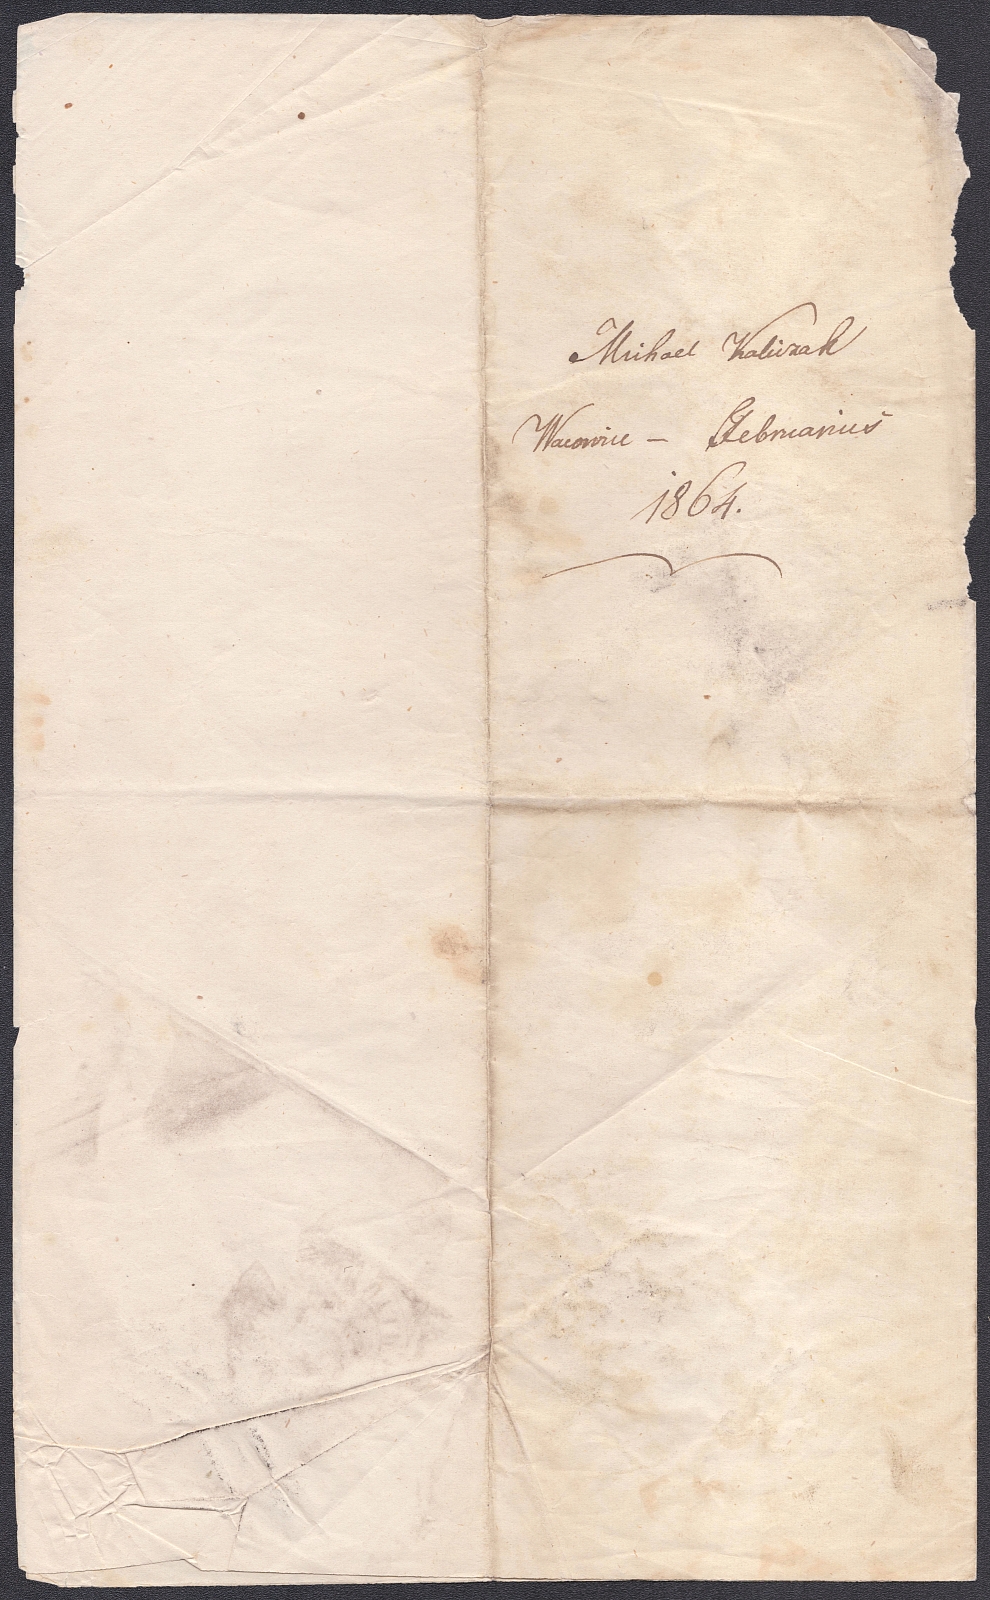 Michael Kaliczak
Wacowice – Februarius
1864.